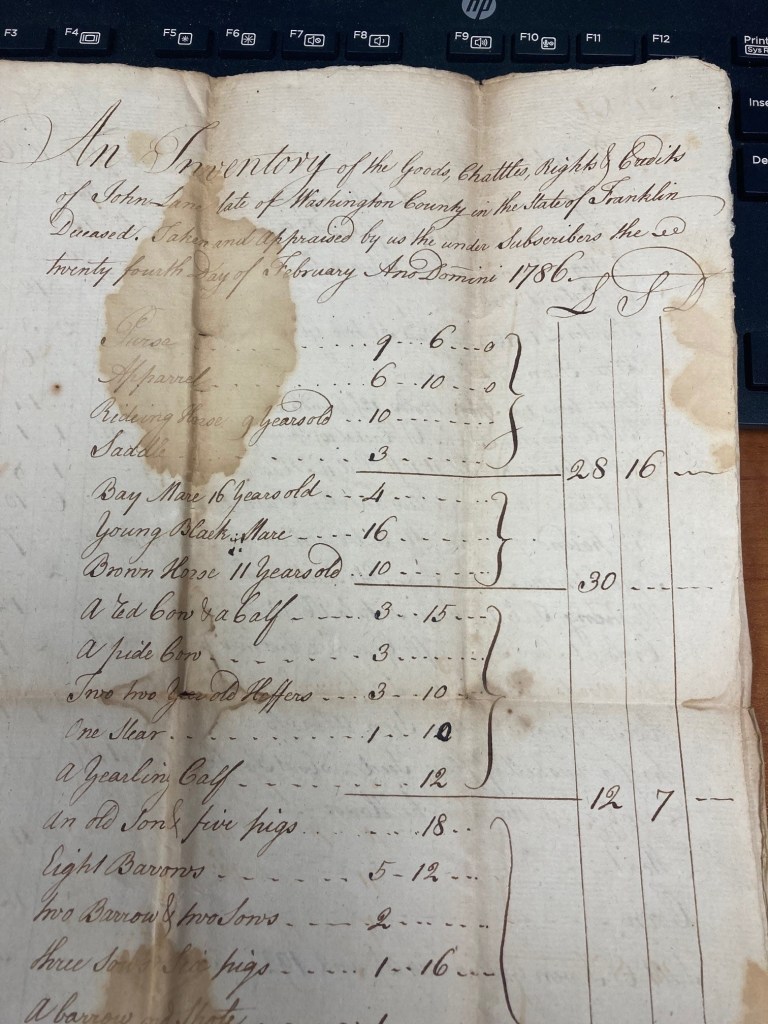 hp
F3 F4 F5 F6 F7 F8 F9 F10 F11 F12 Print
Sys R
Inse
De
An Inventory of the Goods, Chattles, Rights & Credits
of John Lane late of Washington County in the State of Franklin
Deceased. Taken and Appraised by us the under Subscribers the
twenty fourth Day of February Ano Domini 1786.
L S D
Purse 9 6 0
Apparrel 6 10 0
Rideing Horse 9 Years old 10
Saddle 3
28 16
Bay Mare 16 Years old 4
Young Black Mare 16
Brown Horse 11 Years old 10
30
A Red Cow & a Calf 3 15
A pide Cow 3
Two two Year old Heffers 3 10
One Stear 1 10
A Yearling Calf 12
12 7
An old Sow & five pigs 18
Eight Barows 5 12
two Barrow & two Sows 2
three Sows & Six pigs 1 16
A barrow